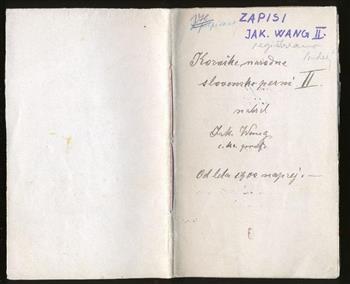 ZAPISI
JAK. WANG II.
Koroške narodne
slovenske pesmi II.
nabral
Jak. Wang
c. kr. prof.
Od leta 1900 naprej. —